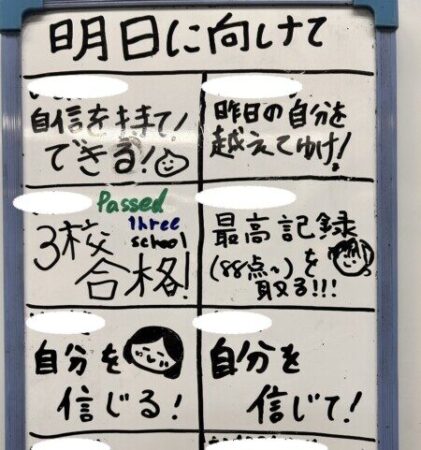 明日に向けて
自信を持て!
できる!
昨日の自分を
越えてゆけ!
Passed
three
school
3校
合格!
最高記録
(88点~)を
取る!!!
自分を
信じる!
自分を
信じて!